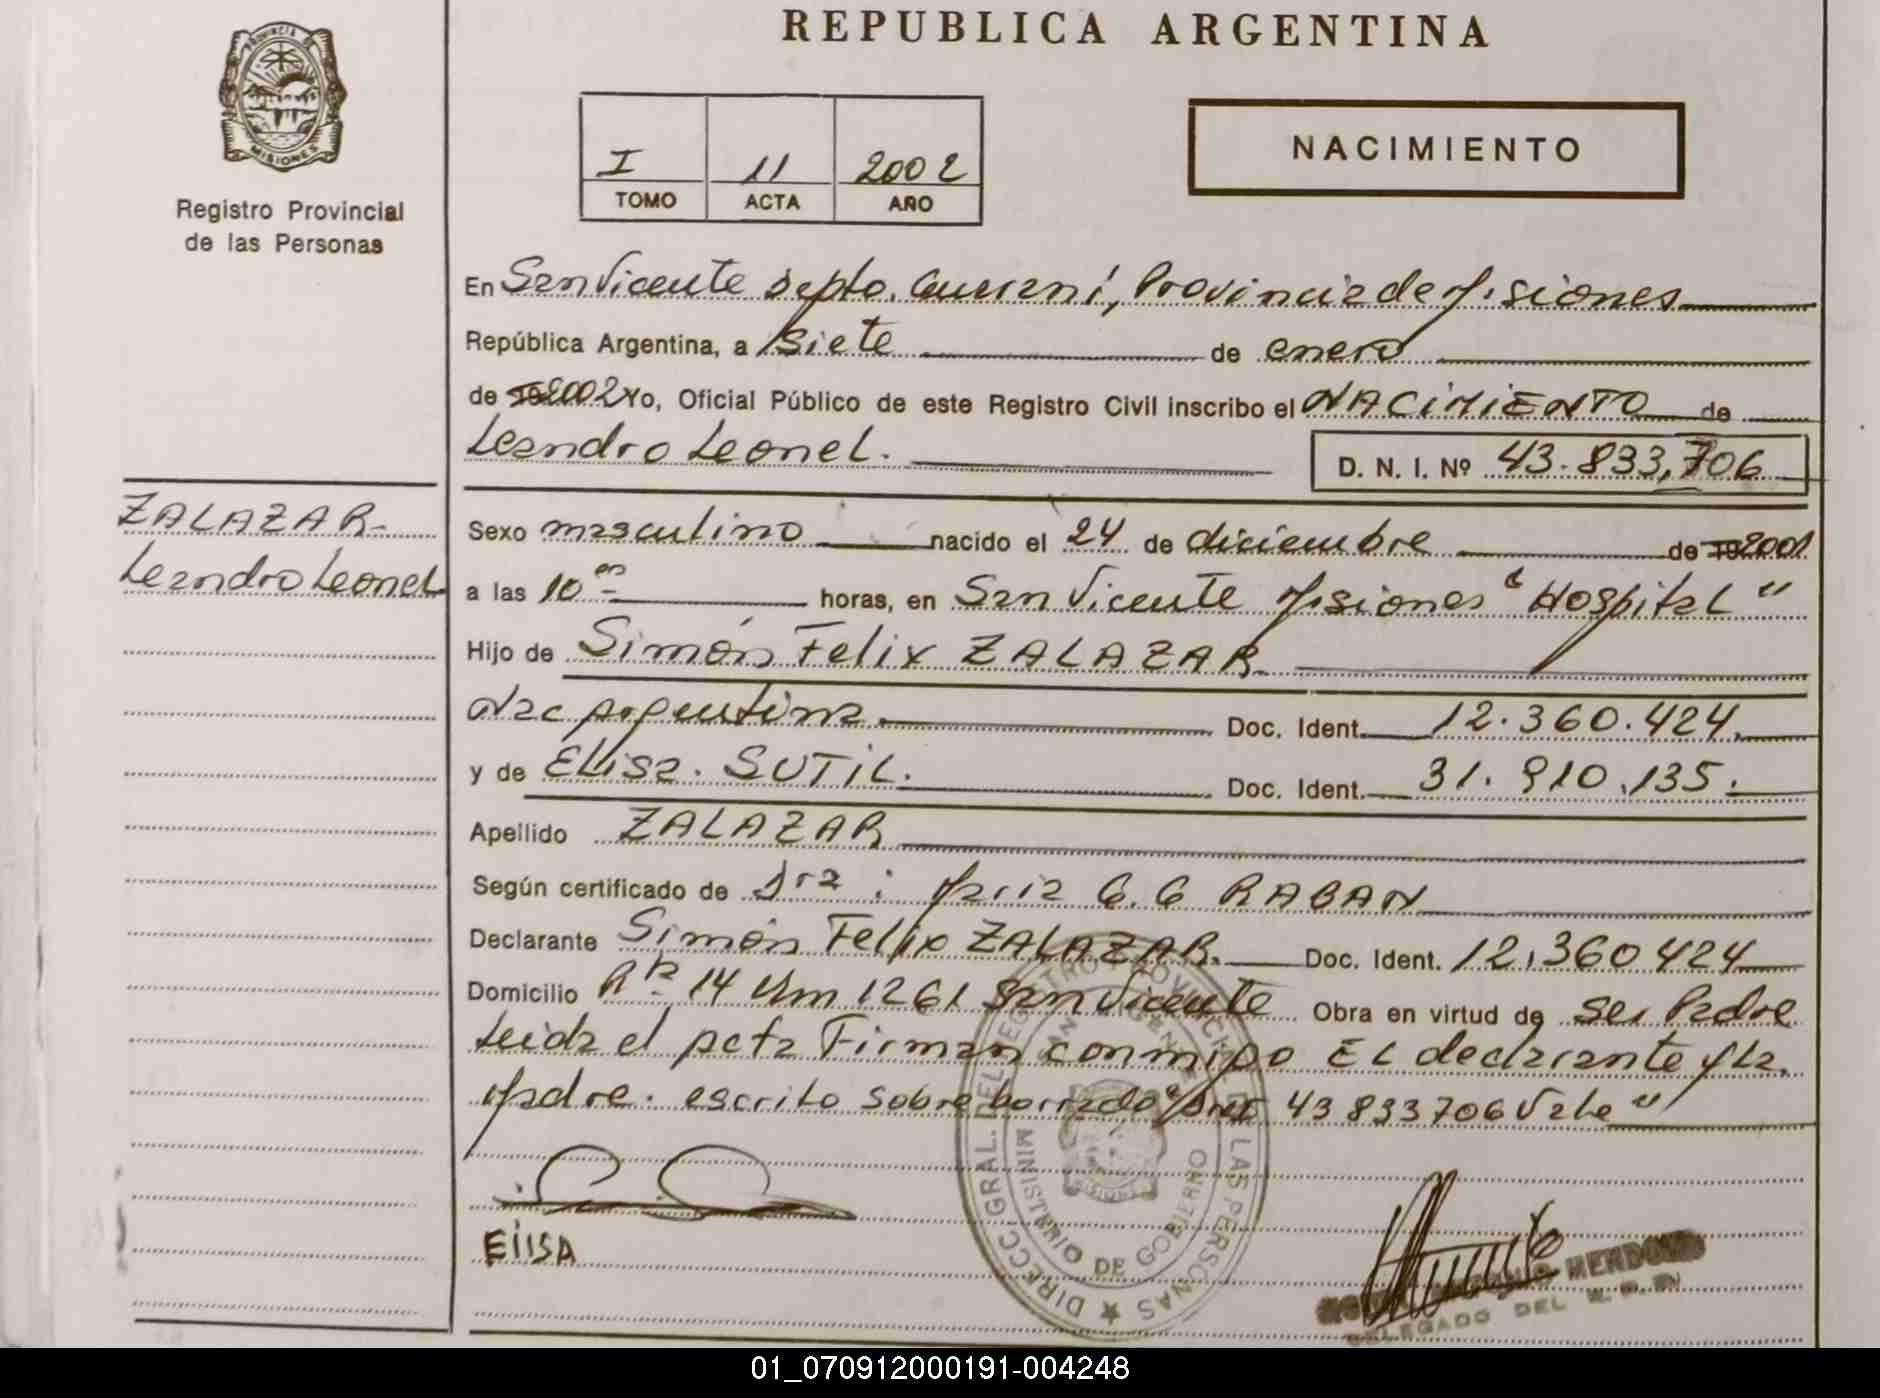 REPUBLICA ARGENTINA
PROVINCIA DE
MISIONES
Registro Provincial
de las Personas
I 11 2002
TOMO ACTA AÑO
NACIMIENTO
En San Vicente Depto. Guaraní, Provincia de Misiones
República Argentina, a siete de enero
de 19 2002 Yo, Oficial Público de este Registro Civil inscribo el NACIMIENTO de
Leandro Leonel.
D. N. I. Nº 43.833,706
ZALAZAR
Leandro Leonel
Sexo masculino nacido el 24 de diciembre de 19 2001
a las 10 horas, en San Vicente Misiones "Hospital"
Hijo de Simón Felix ZALAZAR
Nac Argentina. Doc. Ident. 12.360.424
y de Elisa. SUTIL. Doc. Ident. 31.910.135.
Apellido ZALAZAR
Según certificado de Dra: Maria G. G RABAN
Declarante Simón Felix ZALAZAR. Doc. Ident. 12,360424
Domicilio Rta 14 Km 1261 San Vicente Obra en virtud de Ser Padre
Leida el acta Firman conmigo EL declarante y la
Madre. escrito sobre borrado 43833706 Vale"
DIRECC. GRAL. DEL REGISTRO PROVINCIAL DE LAS PERSONAS
MINISTERIO DE GOBIERNO
MISIONES
EliSA
MENDOZA
DELEGADO DEL R. P. P.
01_070912000191-004248